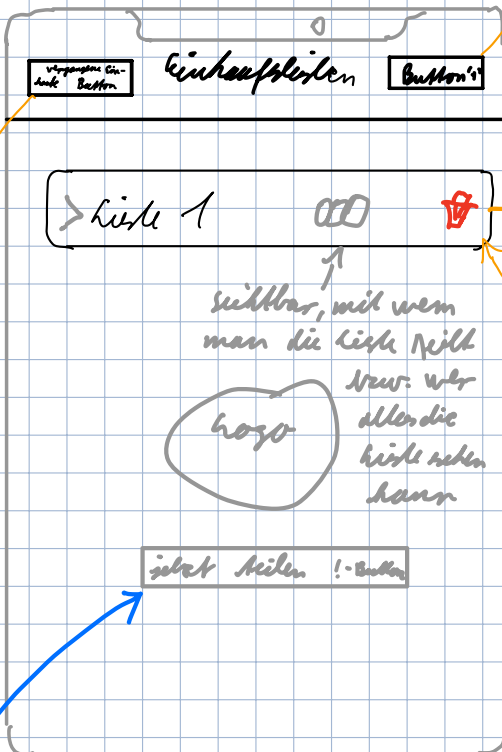 vergangene Ein-
käufe Button
Einkaufslisten
Button "+"
> Liste 1
sichtbar, mit wem
man die Liste teilt
bzw. wer
alles die
Liste sehen
kann
Logo
jetzt teilen !-Button